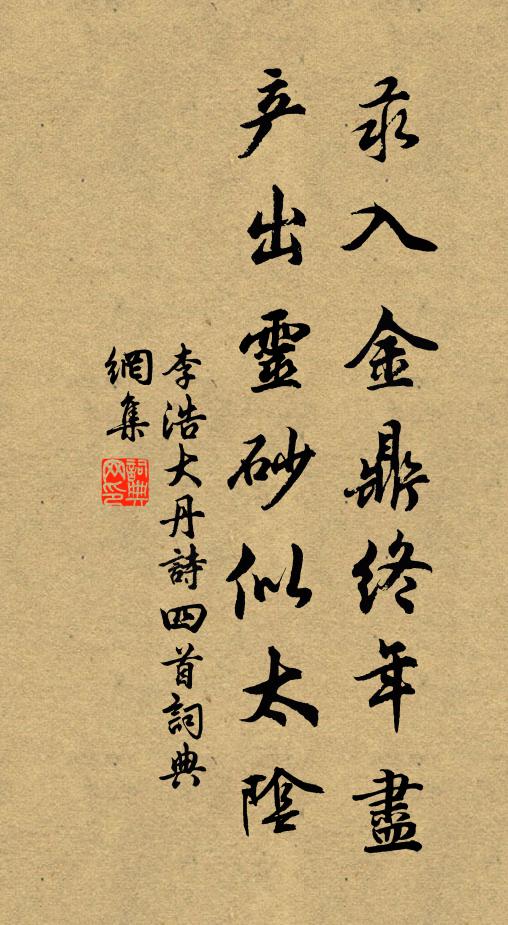 汞入金鼎終年盡
产出靈砂似太陰
李浩大丹詩四首詞典
網集
詞典
网印